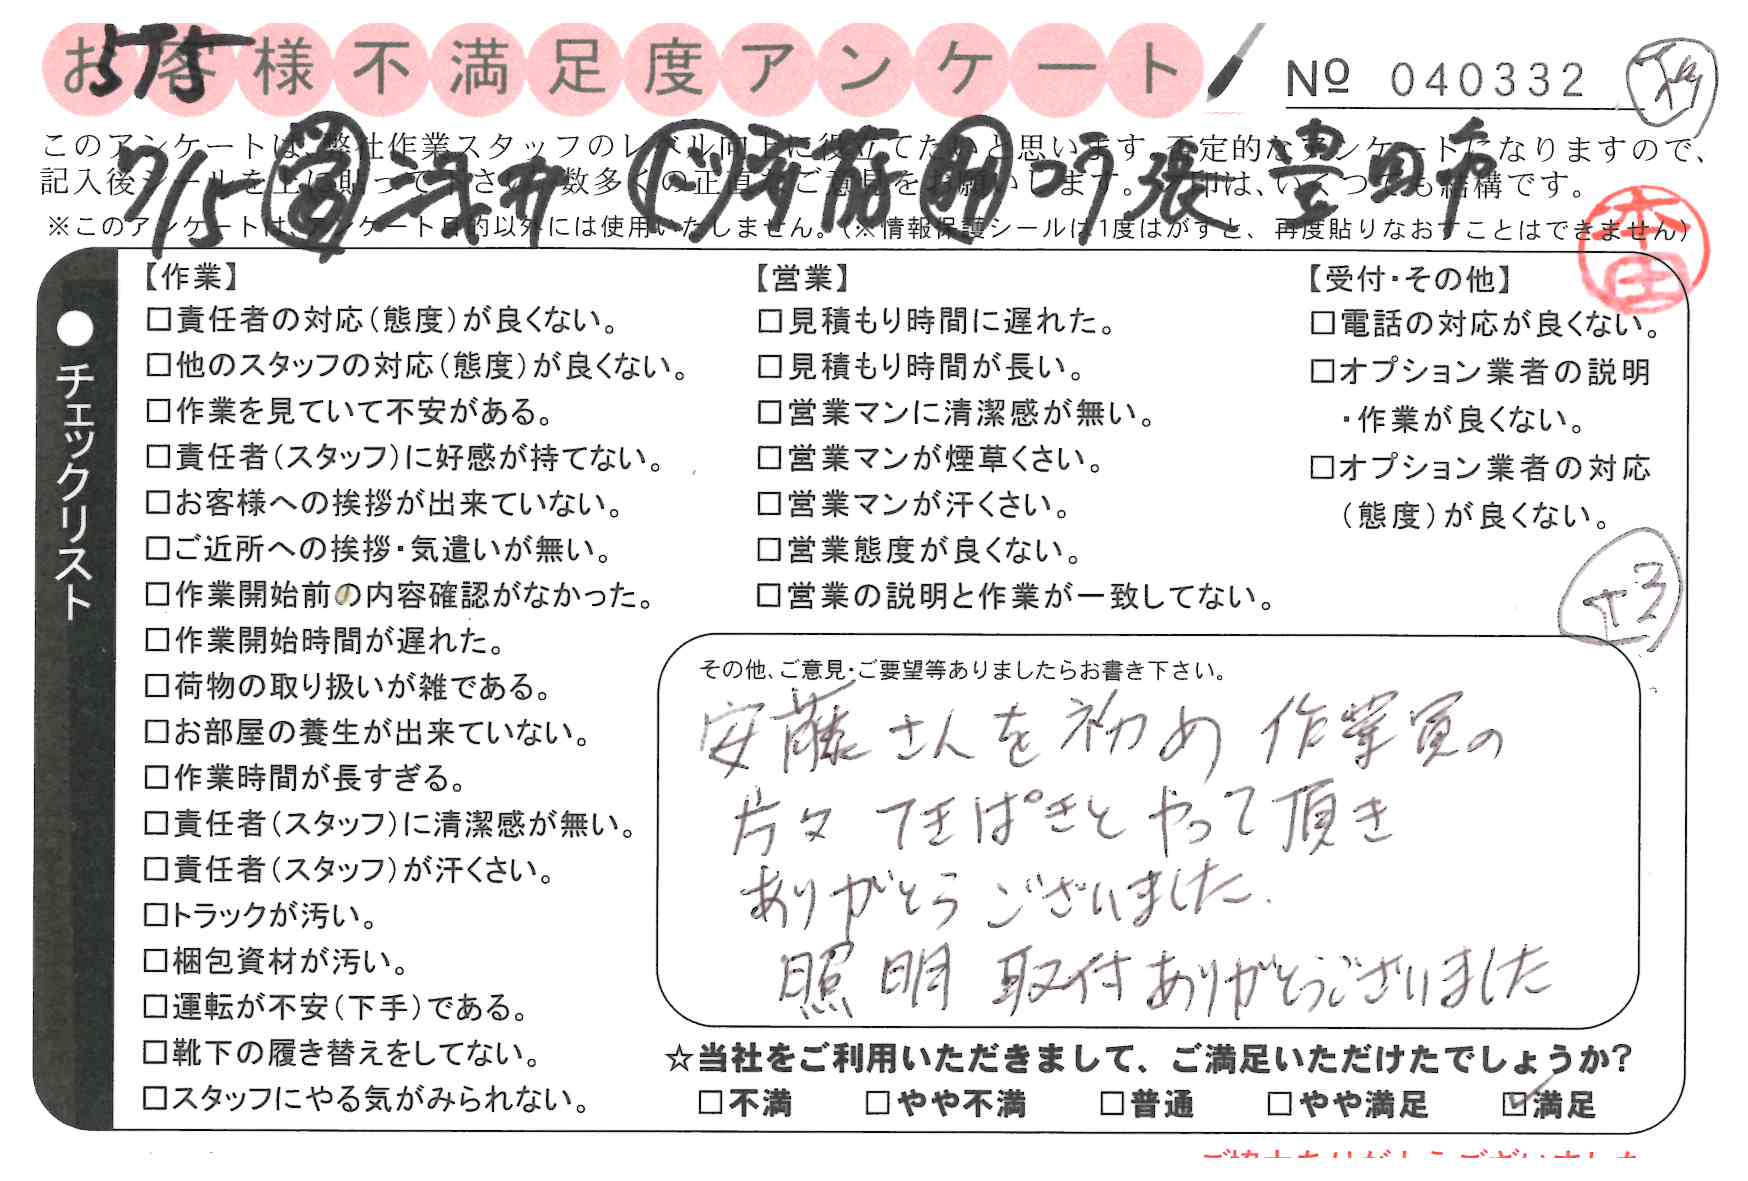 お客様不満足度アンケート
575
Nº 040332
このアンケートは、弊社作業スタッフのレベル向上に役立てたいと思います。不定的なアンケートになりますので、
記入後シールを上に貼って下さい。数多くの正直なご意見をお願いします。 印は、いくつでも結構です。
※このアンケートは、アンケート目的以外には使用いたしません。(※情報保護シールは1度はがすと、再度貼りなおすことはできません)
7/15 浅井 安藤 張 豊田
本田
●チェックリスト
【作業】
□責任者の対応(態度)が良くない。
□他のスタッフの対応(態度)が良くない。
□作業を見ていて不安がある。
□責任者(スタッフ)に好感が持てない。
□お客様への挨拶が出来ていない。
□ご近所への挨拶・気遣いが無い。
□作業開始前の内容確認がなかった。
□作業開始時間が遅れた。
□荷物の取り扱いが雑である。
□お部屋の養生が出来ていない。
□作業時間が長すぎる。
□責任者(スタッフ)に清潔感が無い。
□責任者(スタッフ)が汗くさい。
□トラックが汚い。
□梱包資材が汚い。
□運転が不安(下手)である。
□靴下の履き替えをしてない。
□スタッフにやる気がみられない。
【営業】
□見積もり時間に遅れた。
□見積もり時間が長い。
□営業マンに清潔感が無い。
□営業マンが煙草くさい。
□営業マンが汗くさい。
□営業態度が良くない。
□営業の説明と作業が一致してない。
【受付・その他】
□電話の対応が良くない。
□オプション業者の説明
・作業が良くない。
□オプション業者の対応
(態度)が良くない。
+3
その他、ご意見・ご要望等ありましたらお書き下さい。
安藤さんを初め 作業員の
方々 てきぱきと やって頂き
ありがとうございました.
照明 取付ありがとうございました
☆当社をご利用いただきまして、ご満足いただけたでしょうか?
□不満 □やや不満 □普通 □やや満足 ☑満足
ご協力ありがとうございました